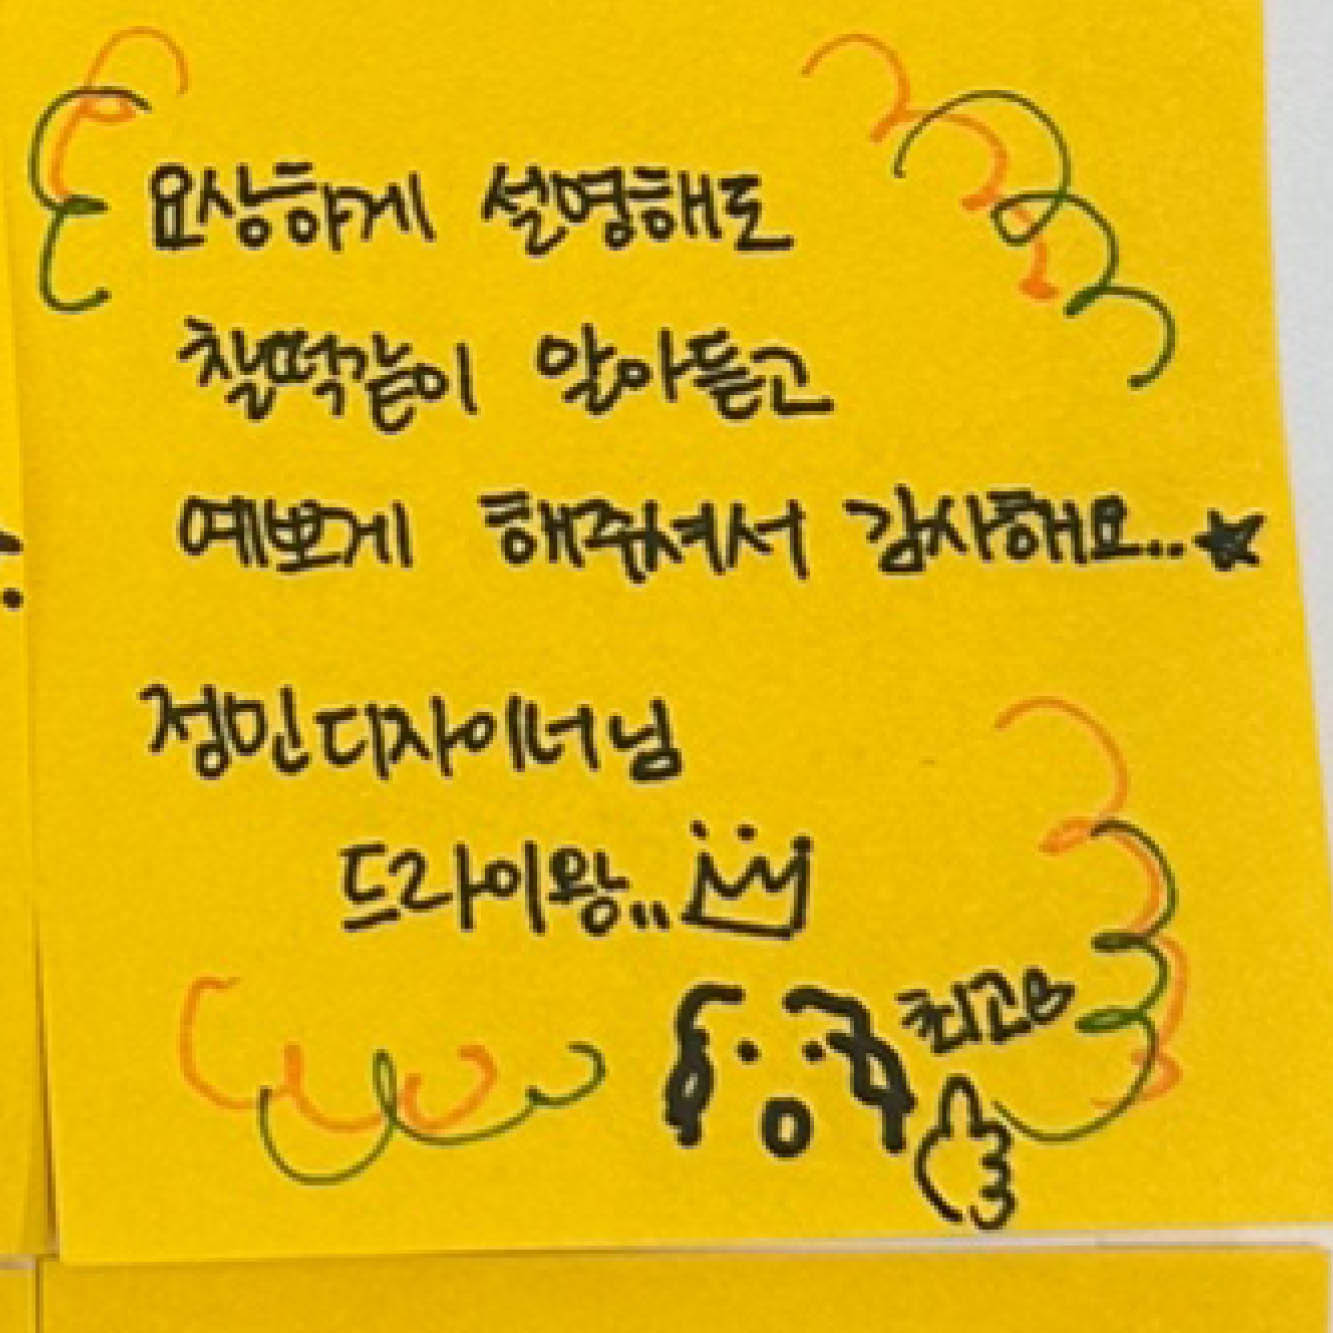 요상하게 설명해도
찰떡같이 알아듣고
예쁘게 해주셔서 감사해요..★
정민디자이너님
드라이왕..
최고♡